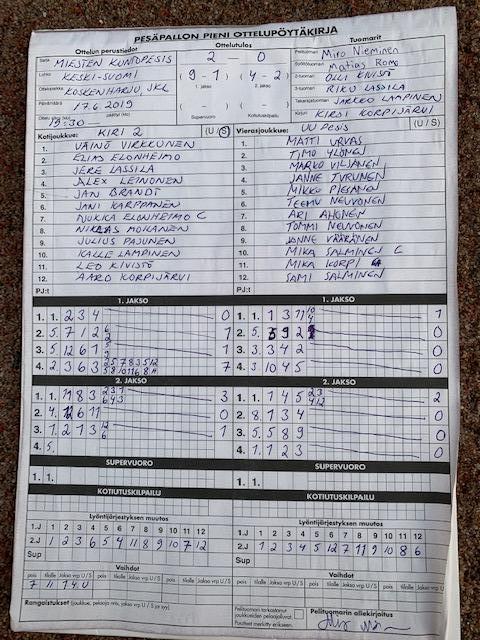 PESÄPALLON PIENI OTTELUPÖYTÄKIRJA
Ottelun perustiedot Ottelutulos Tuomarit
Sarja MIESTEN KUNTOPESIS 2 — 0 Pelituomari Miro Nieminen
Lohko KESKI-SUOMI (9 - 1) (4 - 2) Syöttötuomari Matias Romo
1. jakso 2. jakso 2-tuomari OLLI KIVISTÖ
Ottelupaikka KOSKENHARJU, JKL 3-tuomari RIKU LASSILA
Päivämäärä 17.6.2019 ( - ) ( - ) Takarajatuomari JARKKO LAMPINEN
19:30 Supervuoro Kotiutuskilpailu Kirjuri KIRSI KORPIJÄRVI
Kotijoukkue: KIRI 2 (U / S) Vierasjoukkue: UU Pesis (U / S)
1. VÄINÖ VIRKKUNEN 1. MATTI URVAS
2. ELIAS ELONHEIMO 2. TIMO YLÖNEN
3. JERE LASSILA 3. MARKO VILJANEN
4. ALEX LEINONEN 4. JANNE TURUNEN
5. JAN BRANDT 5. MIKKO PIESANEN
6. JANI KARPPANEN 6. TEEMU NEUVONEN
7. JUKKA ELONHEIMO C 7. ARI AHONEN
8. NIKLAS MOIKANEN 8. TOMMI NEUVONEN
9. JULIUS PAJUNEN 9. JONNE VÄÄRÄNEN
10. KALLE LAMPINEN 10. MIKA SALMINEN C
11. LEO KIVISTÖ 11. MIKA KORPI
12. AARO KORPIJÄRVI 12. SAMI SALMINEN
PJ:t PJ:t
1. JAKSO 1. JAKSO
1. 1. 2 3 4 0 1. 1. 1 3 11 10 4 1
2. 5. 7 1 2 6 2 1 2. 5. 9 2 0
3. 5 12 6 1 1 3. 3. 3 4 2 0
4. 2. 3 6 3 7 4. 3 10 4 5 0
2. JAKSO 2. JAKSO
1. 1. 11 8 3 3 1. 1. 1 4 5 2 3 4 12 2
2. 4. 12 6 11 0 2. 8. 1 3 4 0
3. 1. 2 1 3 12 6 1 3. 5. 5 8 9 0
4. 5. 4. 1. 1 2 3 0
SUPERVUORO SUPERVUORO
1. 1. 1. 1.
KOTIUTUSKILPAILU KOTIUTUSKILPAILU
Lyöntijärjestyksen muutos Lyöntijärjestyksen muutos
1.J 1 2 3 4 5 6 7 8 9 10 11 12 1.J 1 2 3 4 5 6 7 8 9 10 11 12
2.J 1 2 3 6 5 4 11 8 9 10 7 12 2.J 1 2 3 4 5 12 7 11 9 10 8 6
Sup Sup
Vaihdot Vaihdot
pois tilalle Jakso vrp U / S pois tilalle Jakso vrp U / S pois tilalle Jakso vrp U / S pois tilalle Jakso vrp U / S
7 11 1 4. U
Rangaistukset (joukkue, pelaaja nro, jakso vrp U/S ja syy) Pelituomari tarkastanut joukkueiden pelaajaluettelot Pelituomarin allekirjoitus
Puutteet merkitty erikseen.